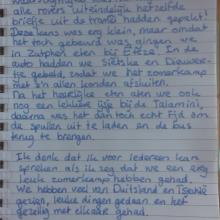 alle rovers uiteindelijk hetzelfde
briefje uit de trommel hadden gepakt!
Deze kans was erg klein, maar omdat
het toch gebeurd was gingen we
in Zutphen eten bij Efeze. In de
auto hadden we Sietske en Dieuwer-
tje gebeld, zodat we het zomerkamp
met z'n allen konden afsluiten.
Na het heerlijke eten aten we ook
nog een lekkere ijsje bij de Talamini,
daarna was het dan toch echt tijd om
de spullen uit te laden en de bus
terug te brengen.
Ik denk dat ik voor iedereen kan
spreken als ik zeg dat we een erg
leuk zomerkamp hebben gehad.
We hebben veel van Duitsland en Tsjechië
gezien, leuke dingen gedaan en het
gezellig met elkaar gehad.